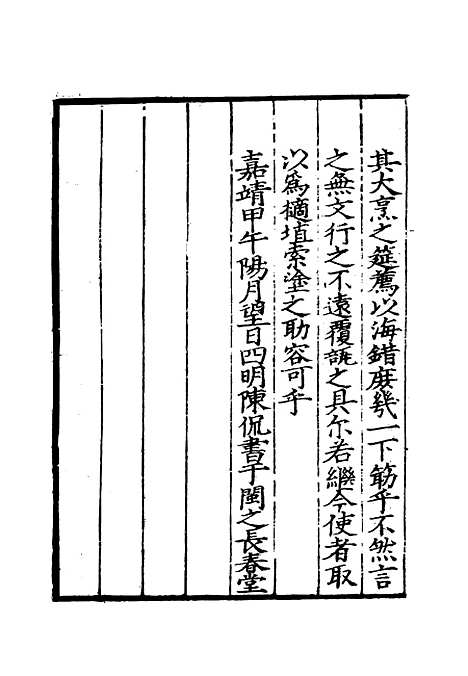 其大烹之筵薦以海錯庶幾一下筯乎不然言
之無文行之不遠覆瓿之具尔若繼今使者取
以爲擿埴索塗之助容可乎
嘉靖甲午陽月望日四明陳侃書于閩之長春堂